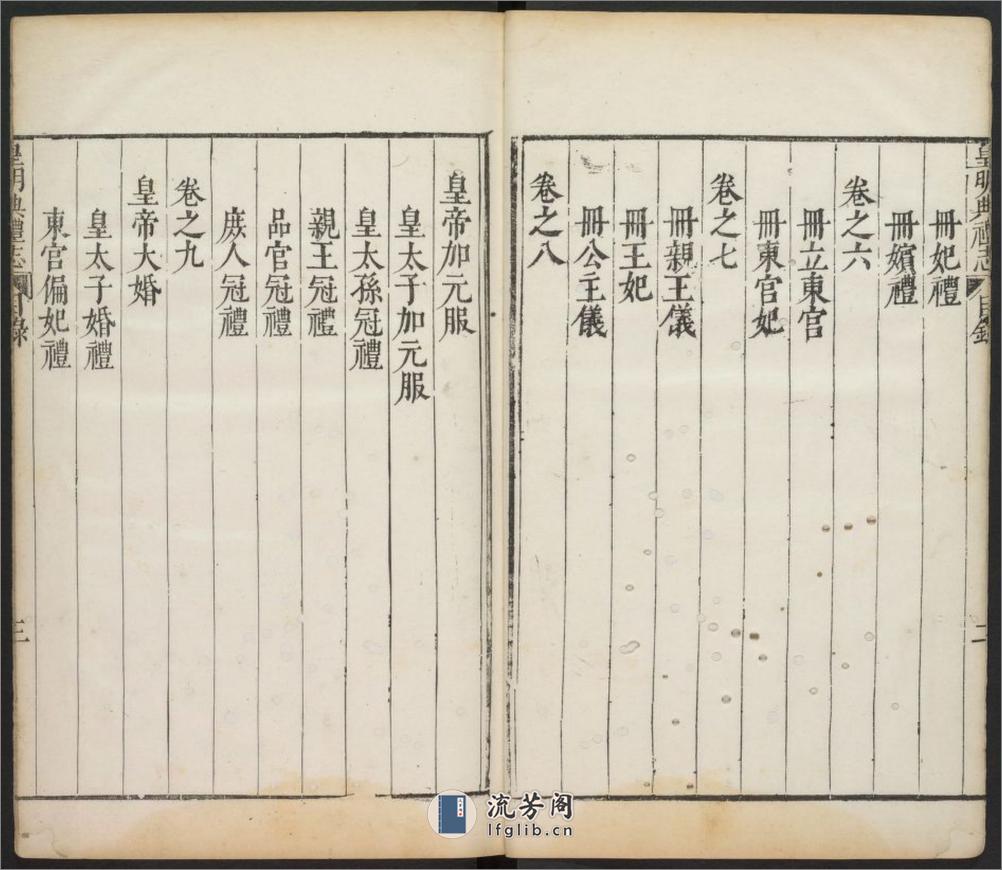 皇明典禮志
目錄
二
冊妃禮
冊嬪禮
卷之六
冊立東宮
冊東宮妃
卷之七
冊親王儀
冊王妃
冊公主儀
卷之八
皇帝加元服
皇太子加元服
皇太孫冠禮
親王冠禮
品官冠禮
庶人冠禮
卷之九
皇帝大婚
皇太子婚禮
東宮偏妃禮
皇明典禮志
目錄
三
流芳阁
lfglib.cn